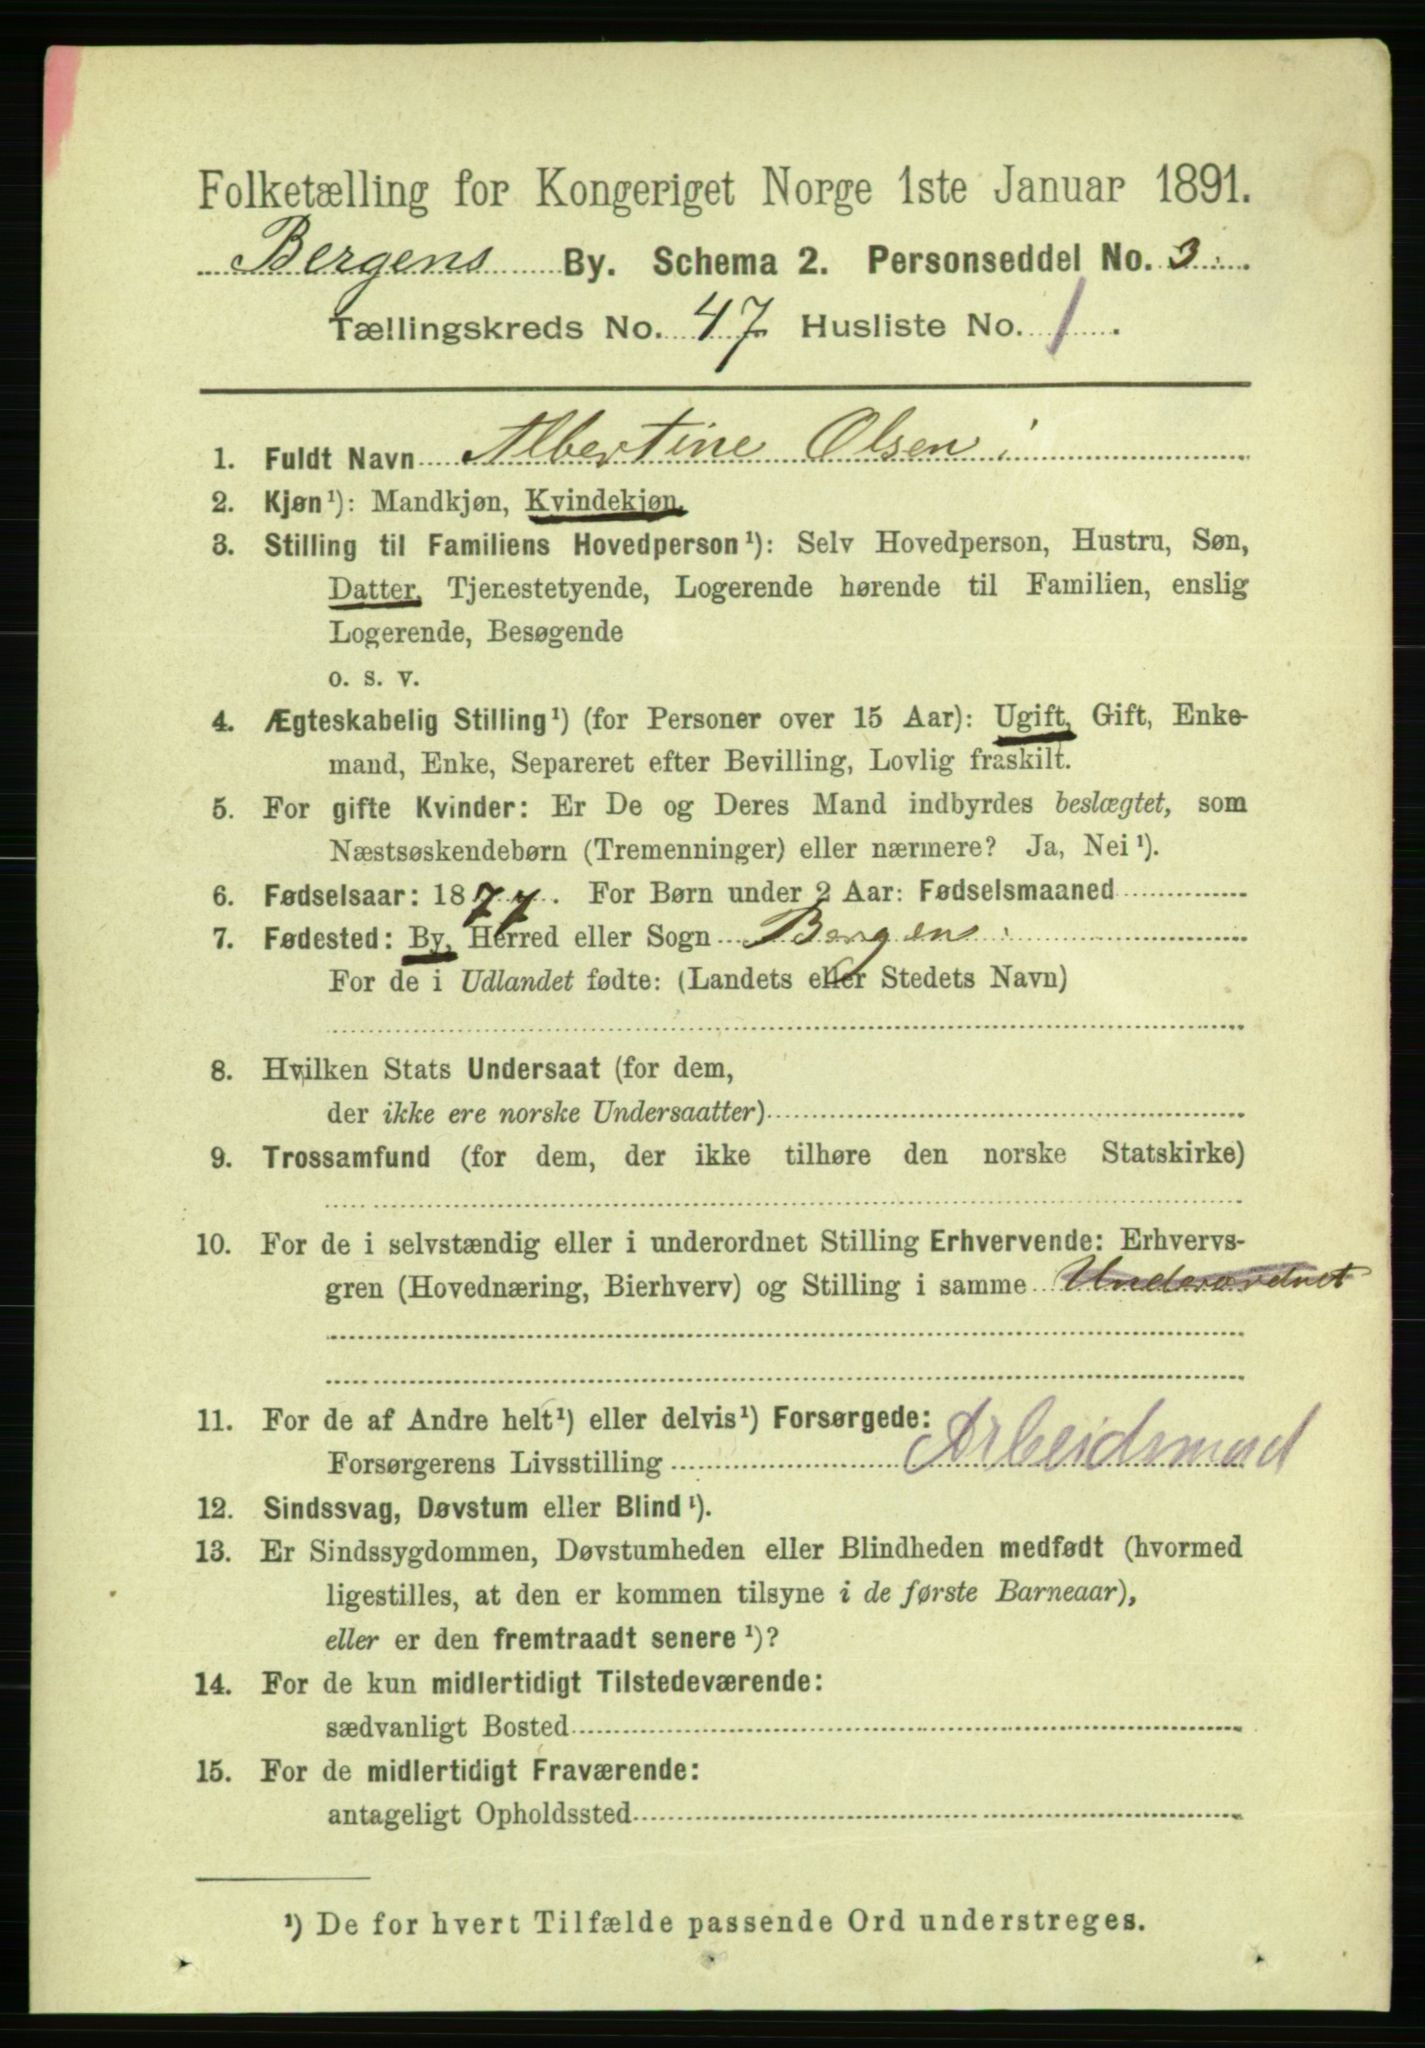 Folketælling for Kongeriget Norge 1ste Januar 1891.
Bergens By. Schema 2. Personseddel No. 3.
Tællingskreds No. 47 Husliste No. 1.
1. Fuldt Navn Albertine Olsen
2. Kjøn¹): Mandkjøn, Kvindekjøn.
3. Stilling til Familiens Hovedperson¹): Selv Hovedperson, Hustru, Søn,
Datter, Tjenestetyende, Logerende hørende til Familien, enslig
Logerende, Besøgende
o. s. v.
4. Ægteskabelig Stilling¹) (for Personer over 15 Aar): Ugift, Gift, Enke-
mand, Enke, Separeret efter Bevilling, Lovlig fraskilt.
5. For gifte Kvinder: Er De og Deres Mand indbyrdes beslægtet, som
Næstsøskendebørn (Tremenninger) eller nærmere? Ja, Nei¹).
6. Fødselsaar: 1877. For Børn under 2 Aar: Fødselsmaaned
7. Fødested: By, Herred eller Sogn Bergen
For de i Udlandet fødte: (Landets eller Stedets Navn)
8. Hvilken Stats Undersaat (for dem,
der ikke ere norske Undersaatter)
9. Trossamfund (for dem, der ikke tilhøre den norske Statskirke)
10. For de i selvstændig eller i underordnet Stilling Erhvervende: Erhvervs-
gren (Hovednæring, Bierhverv) og Stilling i samme Underordnet
11. For de af Andre helt¹) eller delvis¹) Forsørgede:
Forsørgerens Livsstilling Arbeidsmand
12. Sindssvag, Døvstum eller Blind¹).
13. Er Sindssygdommen, Døvstumheden eller Blindheden medfødt (hvormed
ligestilles, at den er kommen tilsyne i de første Barneaar),
eller er den fremtraadt senere¹)?
14. For de kun midlertidigt Tilstedeværende:
sædvanligt Bosted
15. For de midlertidigt Fraværende:
antageligt Opholdssted
¹) De for hvert Tilfælde passende Ord understreges.